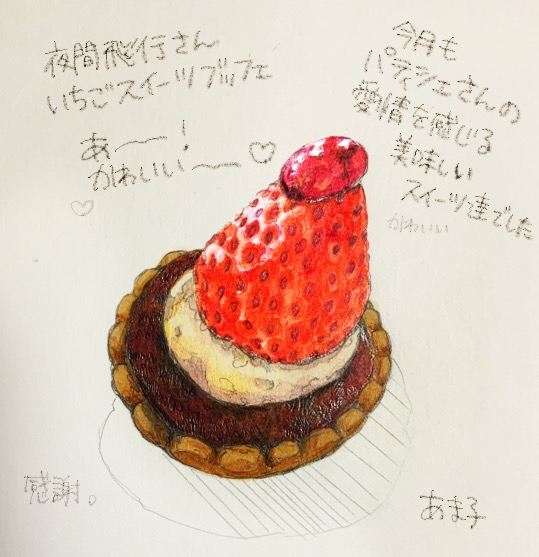 夜間飛行さん
いちごスイーツブッフェ
あ〜〜!
かわいい〜〜♡
♡
今月も
パティシェさんの
愛情を感じる
美味しい
スイーツ達でした
かわいい
感謝。
あま子